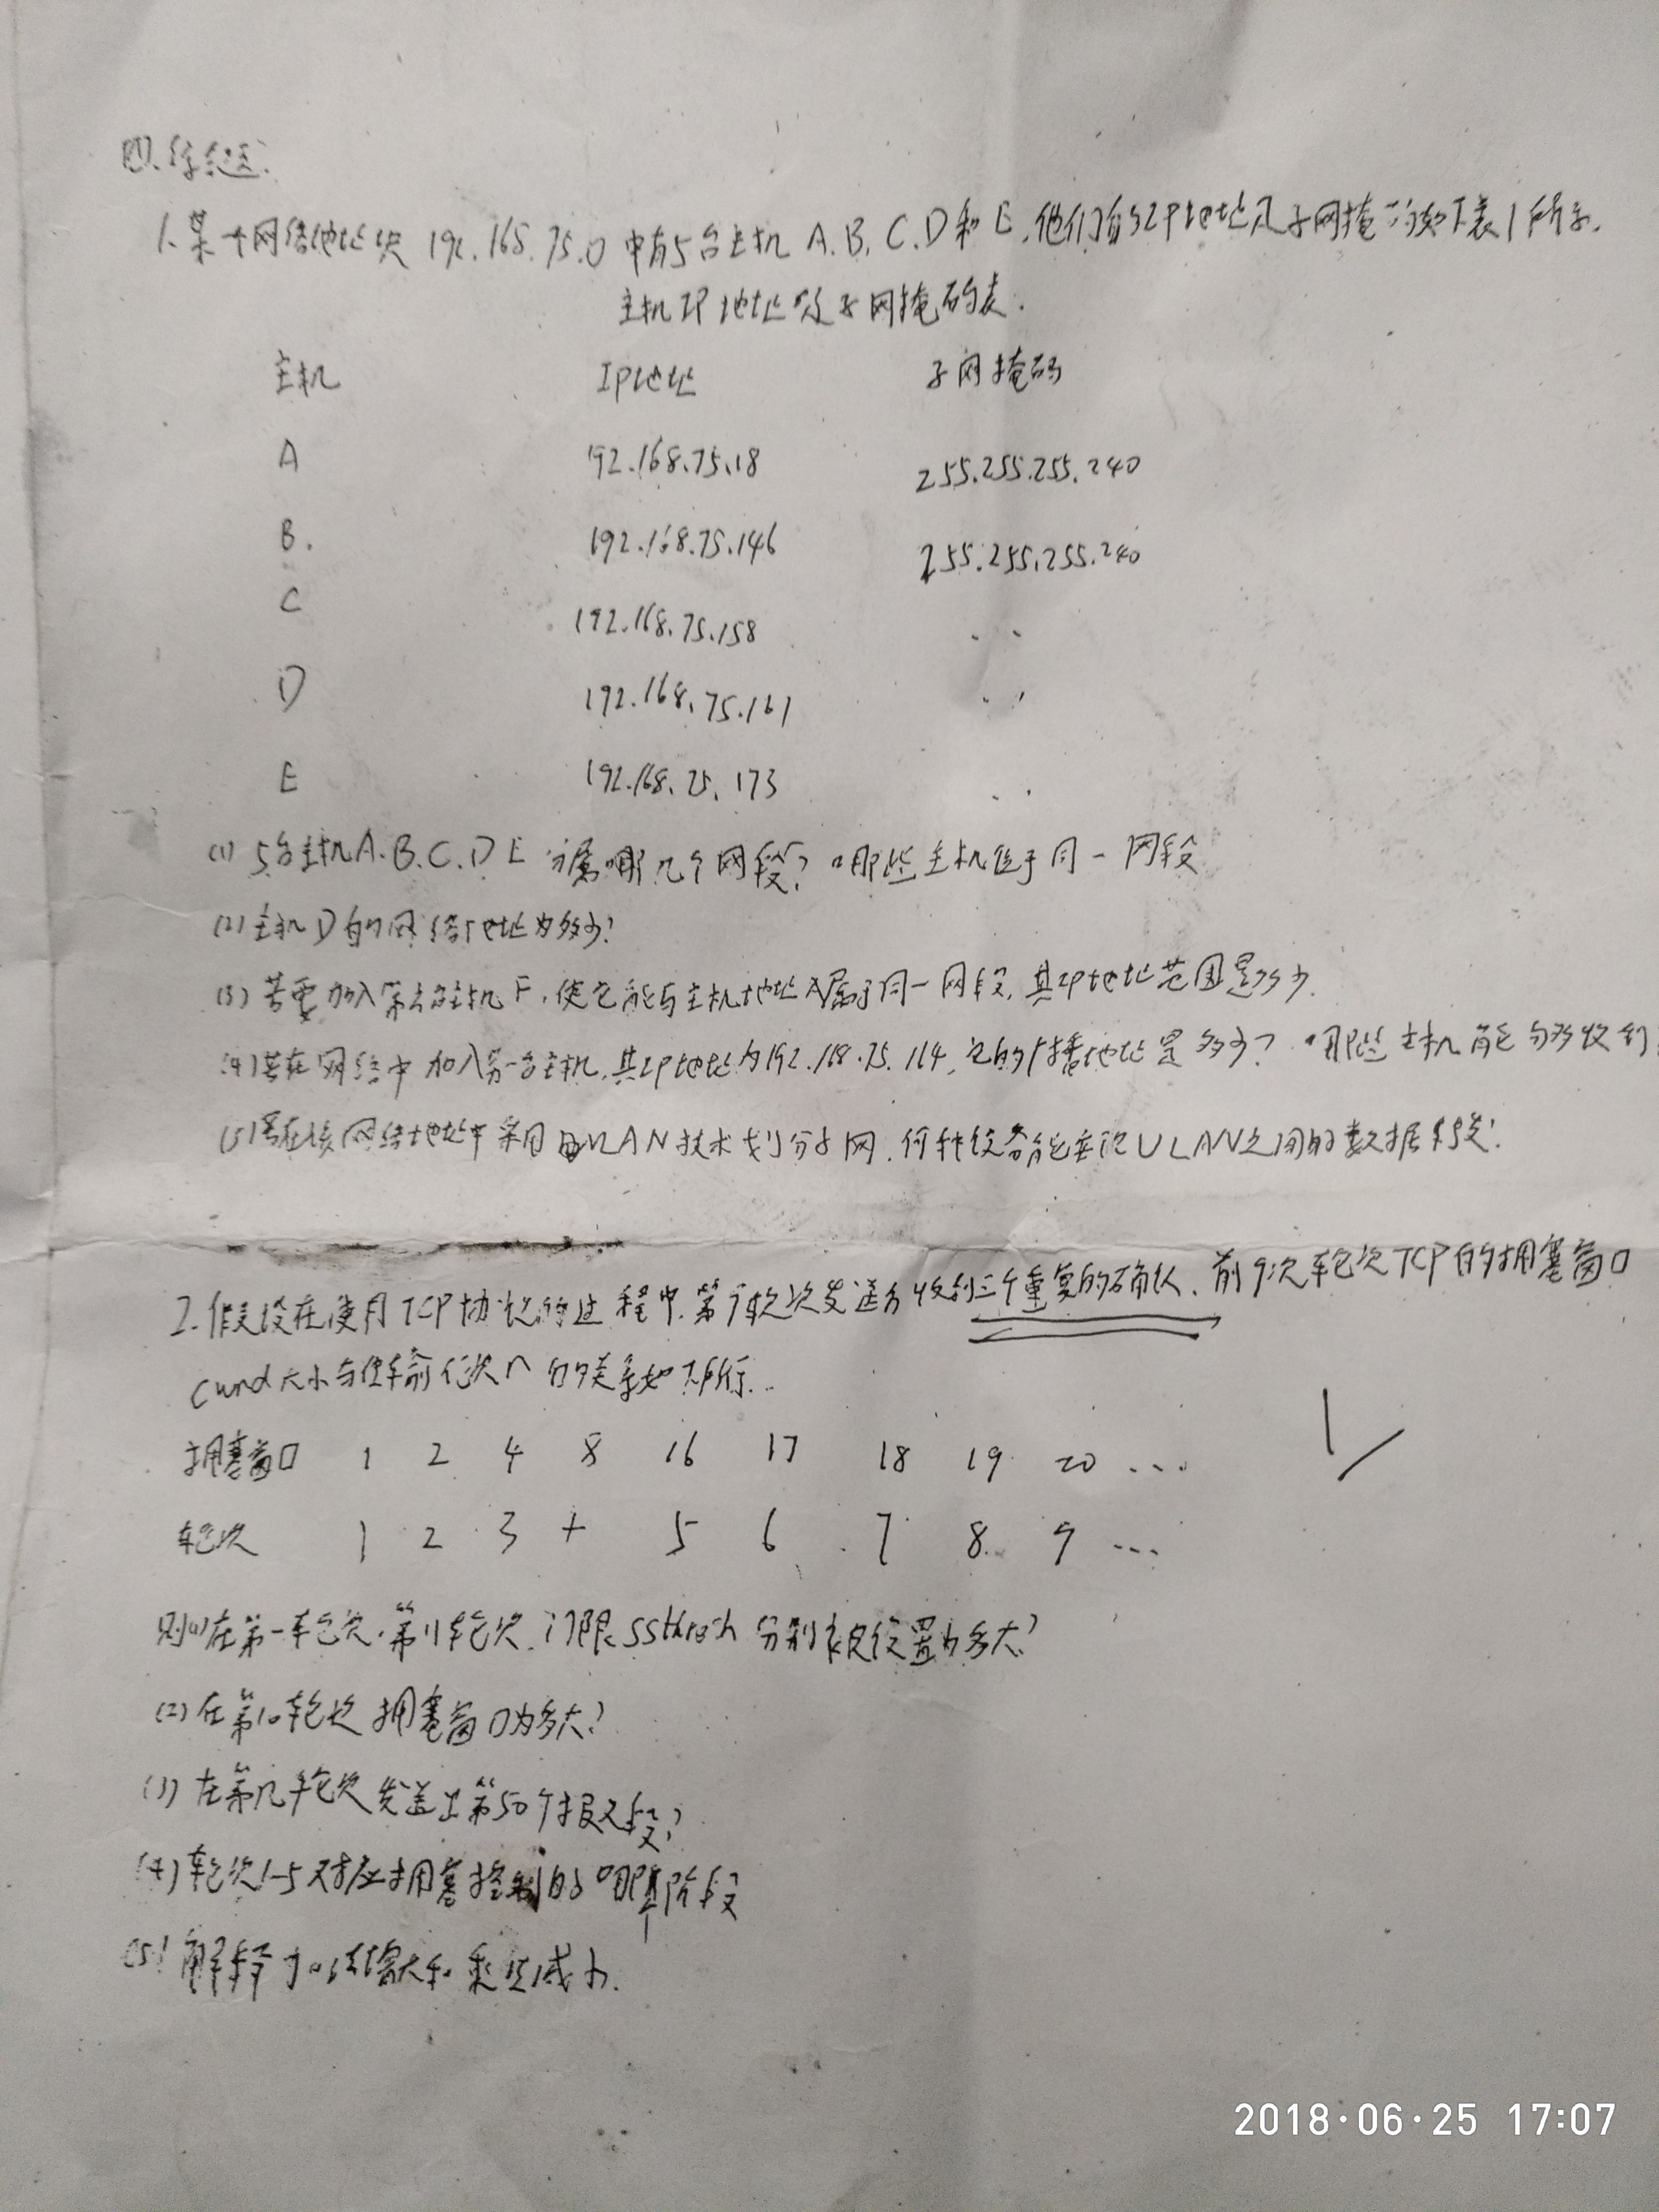 四、综合题.
1. 某一个网络地址块 192.168.75.0 中有5台主机 A. B. C. D 和 E, 他们的IP地址及子网掩码如下表1所示.
主机IP地址及子网掩码表.
主机 IP地址 子网掩码
A 192.168.75.18 255.255.255.240
B. 192.168.75.146 255.255.255.240
C 192.168.75.158 ..
D 192.168.75.161 ..
E 192.168.75.173 ..
(1) 5台主机A. B. C. D E 分属哪几个网段? 哪些主机位于同一网段
(2) 主机D的网络地址为多少?
(3) 若要加入第六台主机F, 使它能与主机地址A属于同一网段, 其IP地址范围是多少.
(4) 若在网络中加入另一台主机, 其IP地址为192.168.75.164, 它的广播地址是多少? 哪些主机能够收到
(5) 若在该网络地址中采用VLAN技术划分子网, 何种设备能实现VLAN之间的数据转发?
2. 假设在使用TCP协议的过程中, 第9轮次发送方收到三个重复的确认, 前9次轮次TCP的拥塞窗口
cwnd大小与传输轮次n的关系如下所示..
拥塞窗口 1 2 4 8 16 17 18 19 20 ...
轮次 1 2 3 4 5 6 7 8 9 ...
则(1)在第一轮次, 第11轮次, 门限ssthresh 分别被设置为多大?
(2) 在第10轮次 拥塞窗口为多大?
(3) 在第几轮次发送出第50个报文段?
(4) 轮次1-5对应拥塞控制的哪个阶段
(5) 解释加法增大和乘法减小.
2018·06·25 17:07